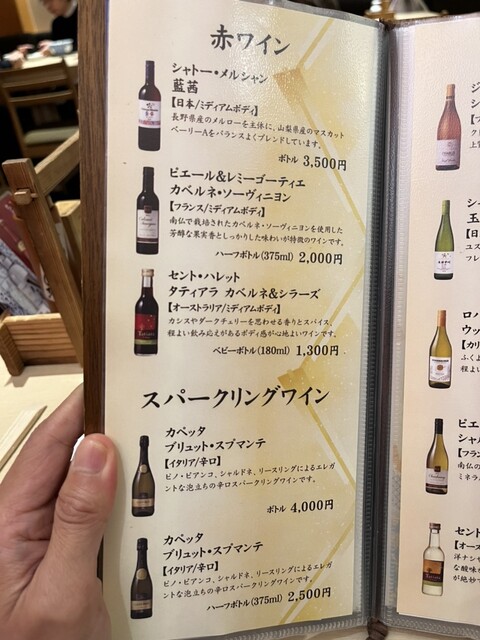 赤ワイン
シャトー・メルシャン
藍茜
【日本/ミディアムボディ】
長野県産のメルローを主体に、山梨県産のマスカット
ベーリーAをバランスよくブレンドしています。
ボトル 3,500円
ピエール&レミーゴーティエ
カベルネ・ソーヴィニヨン
【フランス/ミディアムボディ】
南仏で栽培されたカベルネ・ソーヴィニヨンを使用した
芳醇な果実香としっかりした味わいが特徴のワインです。
ハーフボトル(375ml) 2,000円
セント・ハレット
タティアラ カベルネ&シラーズ
【オーストラリア/ミディアムボディ】
カシスやダークチェリーを思わせる香りとスパイス、
程よい飲み応えがあるボディ感が心地よいワインです。
ベビーボトル(180ml) 1,300円
スパークリングワイン
カペッタ
ブリュット・スプマンテ
【イタリア/辛口】
ピノ・ビアンコ、シャルドネ、リースリングによるエレガ
ントな泡立ちの辛口スパークリングワインです。
ボトル 4,000円
カペッタ
ブリュット・スプマンテ
【イタリア/辛口】
ピノ・ビアンコ、シャルドネ、リースリングによるエレガ
ントな泡立ちの辛口スパークリングワインです。
ハーフボトル(375ml) 2,500円
ジ
シ
【フ
ク
上質
シャ
玉
【日
ユス
フレ
ロバ
ウッ
【カリ
ふくよ
程よい
ピエ
シャル
【フラン
南仏の
ミネラ
セント
【オース
洋ナシ
な酸味
が絶妙